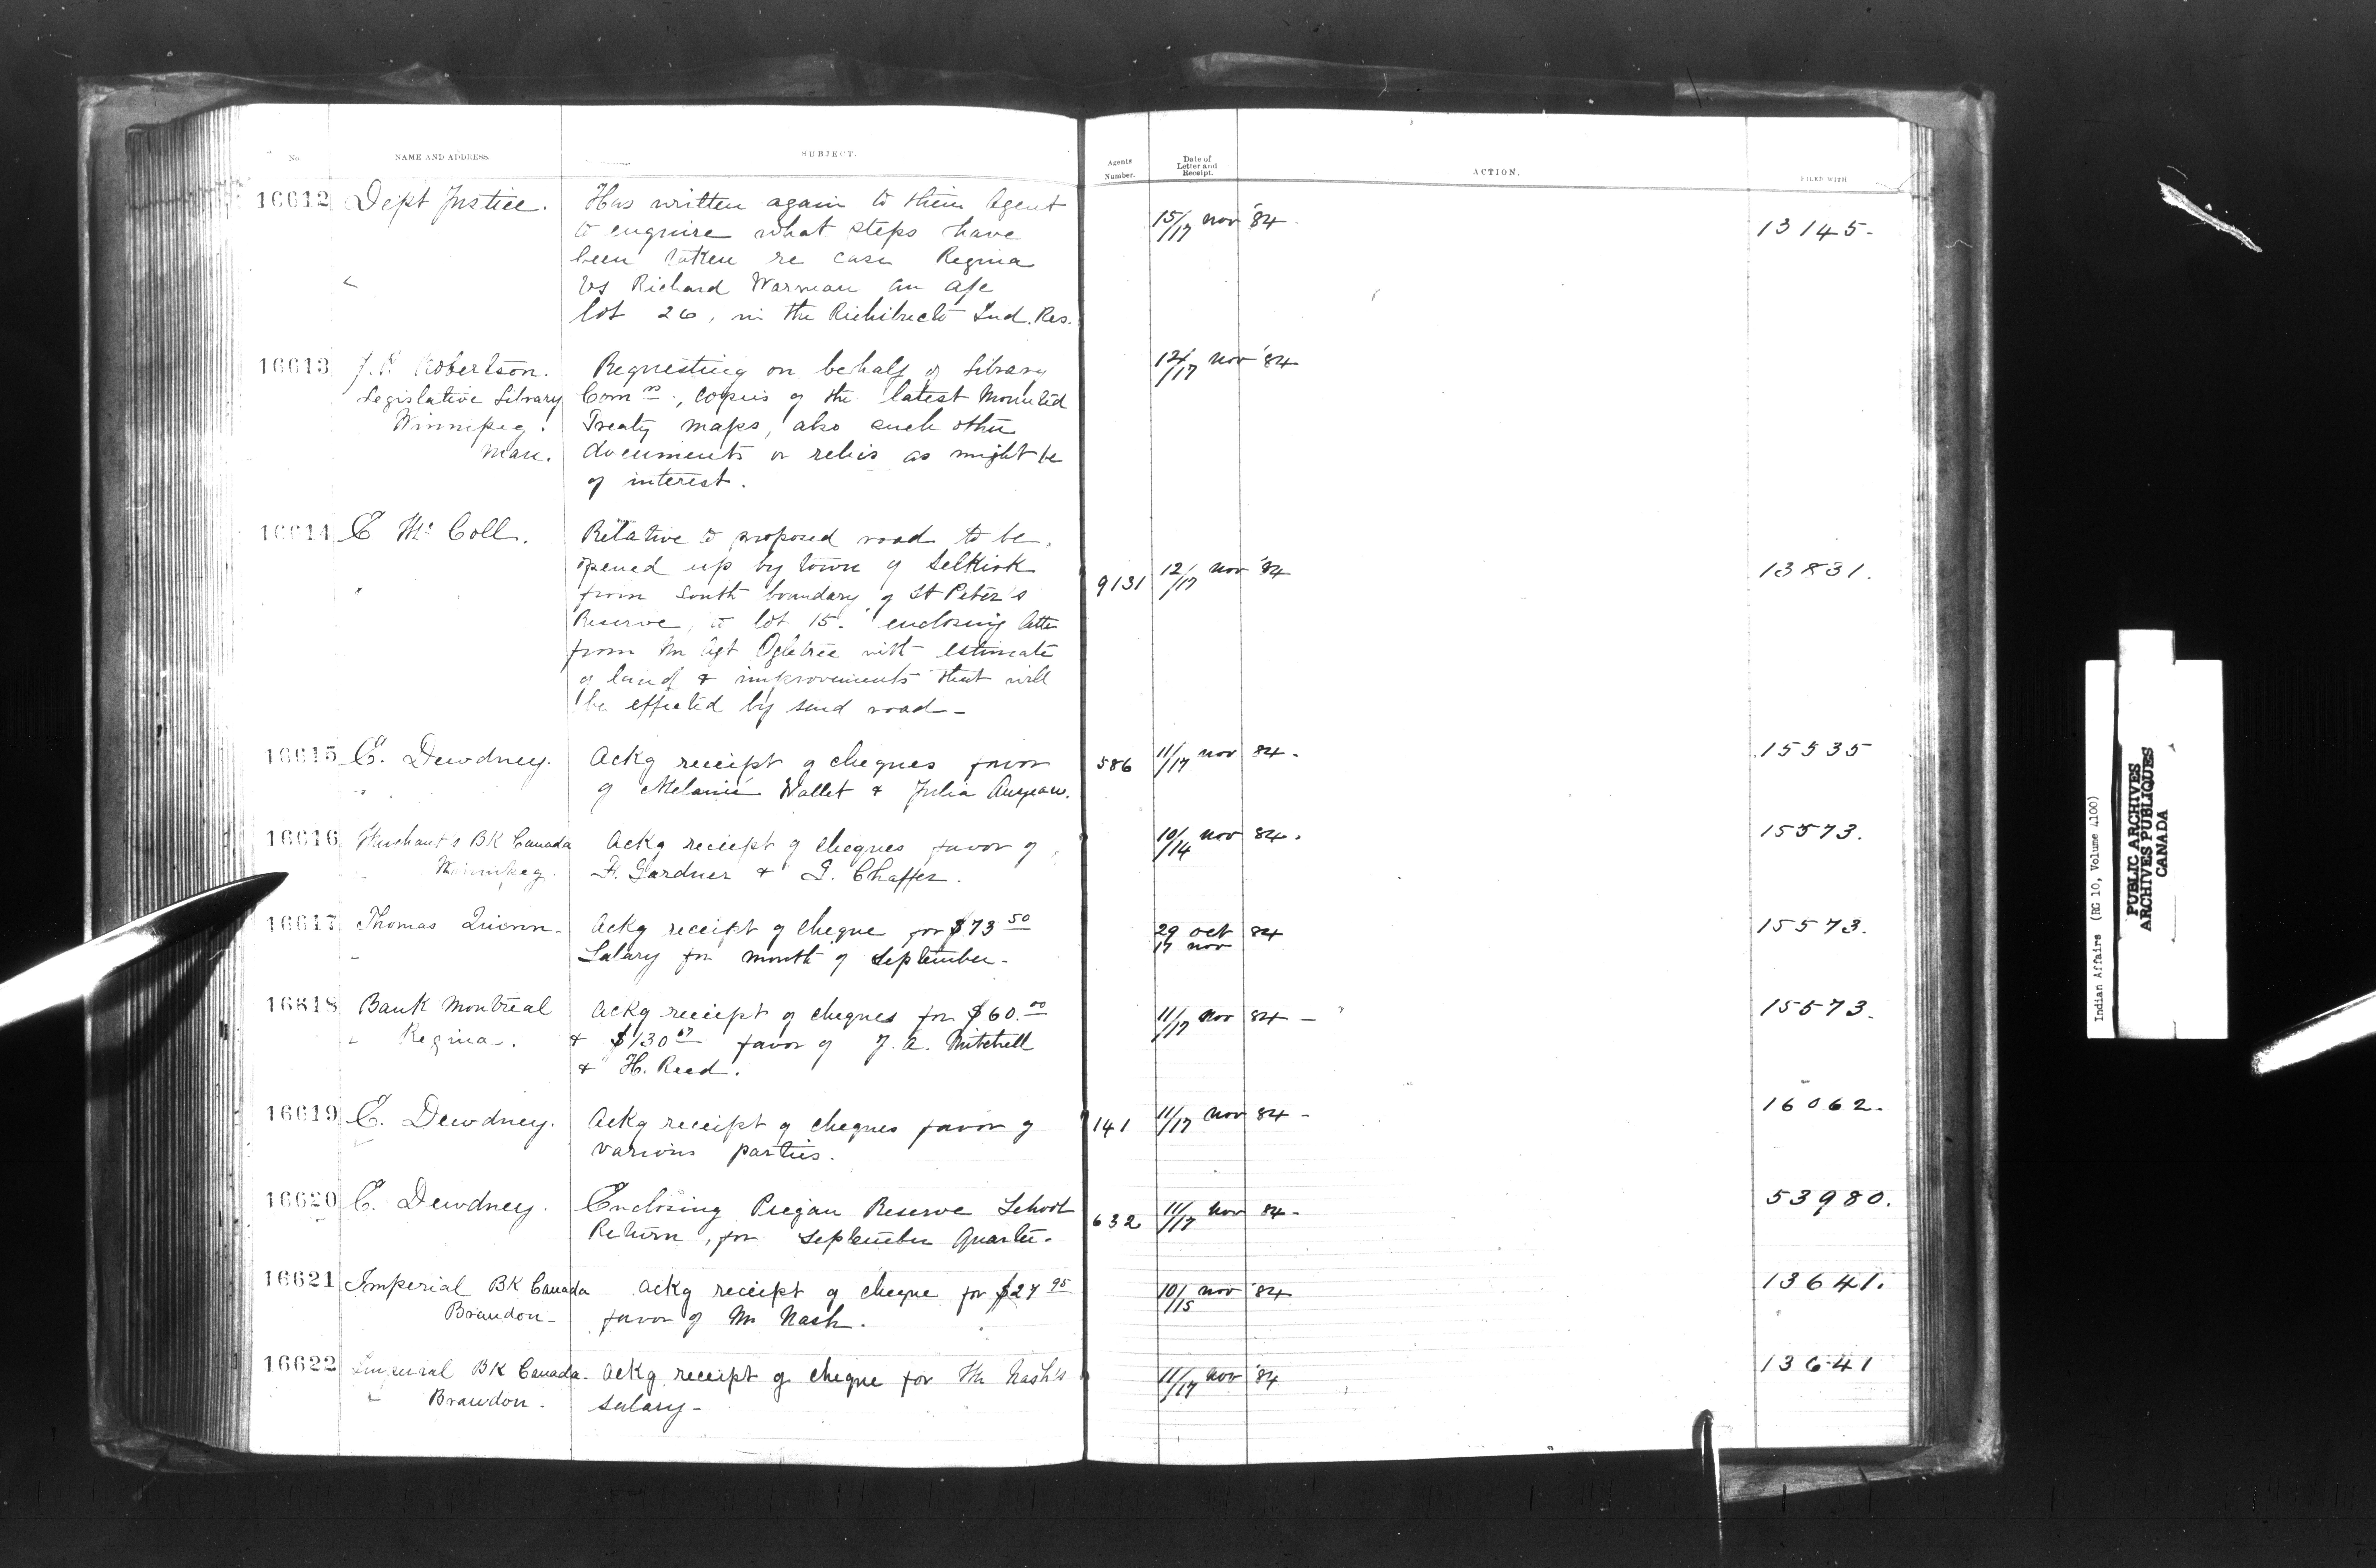 No. NAME AND ADDRESS. SUBJECT. Agents Number. Date of Letter and Receipt. ACTION. FILED WITH
16612 Dept Justice. Has written again to their Agent 15/17 nov '84 13145.
to enquire what steps have
been taken re case Regina
vs Richard Warman an a/c
lot 26, in the Richibucto Ind. Res.
16613 J.P. Robertson. Requesting on behalf of Library 12/17 nov '84
Legislative Library Com'rs, copies of the latest Mounted
Winnipeg. Treaty maps, also such other
Man. documents or relics as might be
of interest.
16614 E McColl. Relative to proposed road to be
opened up by town of Selkirk 9131 12/17 nov '84 13831.
from South boundary of St Peter's
Reserve, to lot 15. enclosing letter
from Mr Agt Ogletree with estimate
of land & improvements that will
be effected by said road -
16615 E. Dewdney. Ackg receipt of cheques favor 586 11/17 nov 84. 15535
of Melanie Wallet & Julia
16616 Merchant's BK Canada Ackg receipt of cheques favor of 10/14 nov 84. 15573.
Winnipeg. F. Gardner & J. Chaffer.
16617 Thomas Quinn - Ackg receipt of cheque for $73 50 29 oct 84 15573.
Salary for month of September - 17 nov
16618 Bank Montreal Ackg receipt of cheques for $60.00 11/17 Nov 84 - 15573.
" Regina. & $130 67 favor of J. A. Mitchell
& H. Reed.
16619 E. Dewdney. Ackg receipt of cheques favor of 141 11/17 nov 84 - 16062.
various parties.
16620 E. Dewdney. Enclosing Piegan Reserve School 632 11/17 Nov 84 - 53980.
Return, for September Quarter.
16621 Imperial BK Canada Ackg receipt of cheque for $27 95 10/15 nov '84 13641.
Brandon - favor of Mr Nash.
16622 Imperial BK Canada. Ackg receipt of cheque for Mr Nash's 11/17 nov '84 13641
" Brandon. salary -
Indian Affairs (RG 10, Volume 4100)
PUBLIC ARCHIVES
ARCHIVES PUBLIQUES
CANADA